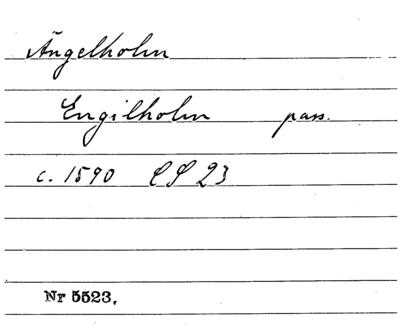 Ängelholm
Engilholm pass.
c. 1590 CS 23
Nr 5523.